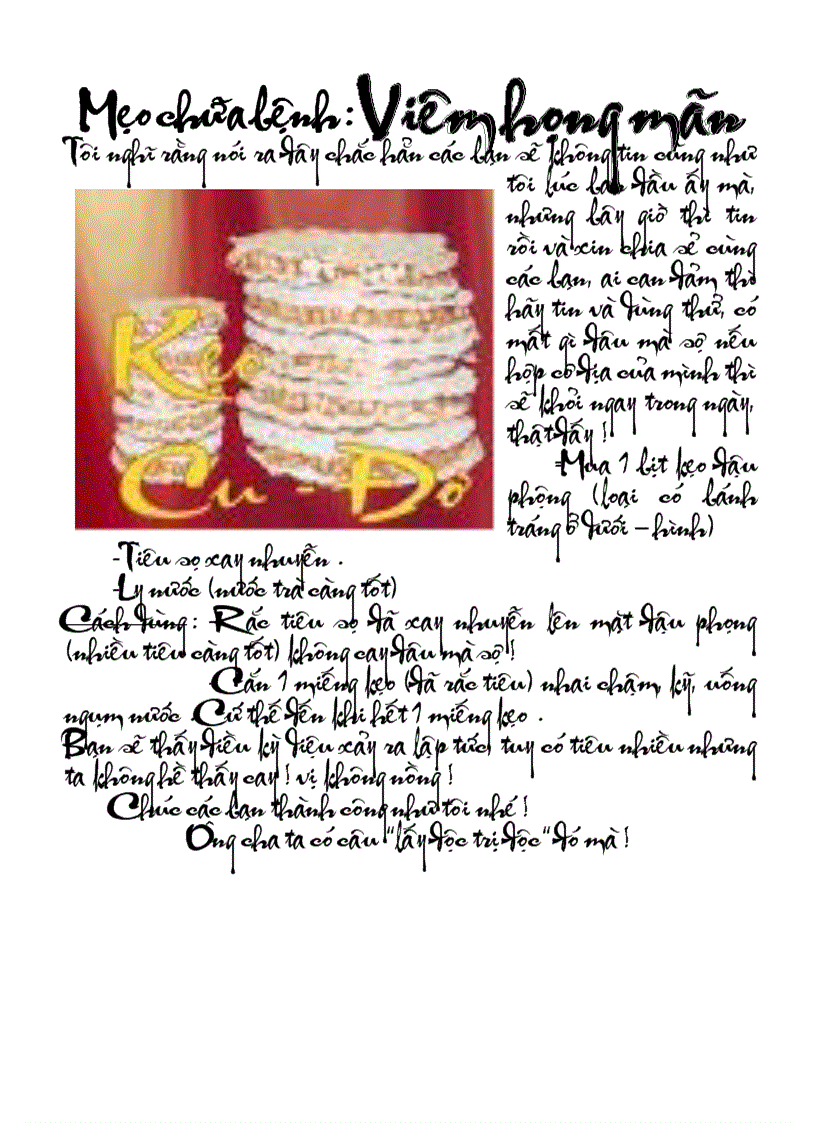 Mẹo chữa bệnh : Viêm họng mãn
Tôi nghĩ rằng nói ra đây chắc hẳn các bạn sẽ không tin cũng như
tôi lúc ban đầu ấy mà,
nhưng bây giờ thì tin
rồi và xin chia sẻ cùng
các bạn, ai can đảm thì
hãy tin và dùng thử, có
mất gì đâu mà sợ nếu
hộp cơ địa của mình thì
sẽ khỏi ngay trong ngày,
thật đấy !
-Mua 1 bịt kẹo đậu
phộng (loại có bánh
tráng ở dưới – hình)
Kẹo
Cu - Đơ
-Tiêu sọ xay nhuyễn .
-Ly nước (nước trà càng tốt)
Cách dùng : Rắc tiêu sọ đã xay nhuyễn lên mặt đậu phọng
(nhiều tiêu càng tốt) không cay đâu mà sợ !
Cắn 1 miếng kẹo (đã rắc tiêu) nhai chậm, kỹ, uống
ngụm nước . Cứ thế đến khi hết 1 miếng kẹo .
Bạn sẽ thấy điều kỳ diệu xảy ra lập tức, tuy có tiêu nhiều nhưng
ta không hề thấy cay ! vị không nồng !
Chúc các bạn thành công như tôi nhé !
Ông cha ta có câu “lấy độc trị độc“ đó mà !